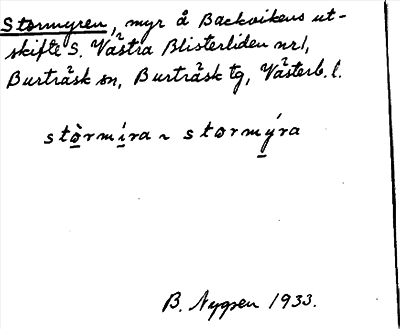 Stormyren, myr å Backvikens ut-
skifte S. Västra Blisterliden nr 1,
Burträsk sn, Burträsk tg, Västerb. l.
stòrmíra ~ stormýra
B. Nygren 1933.